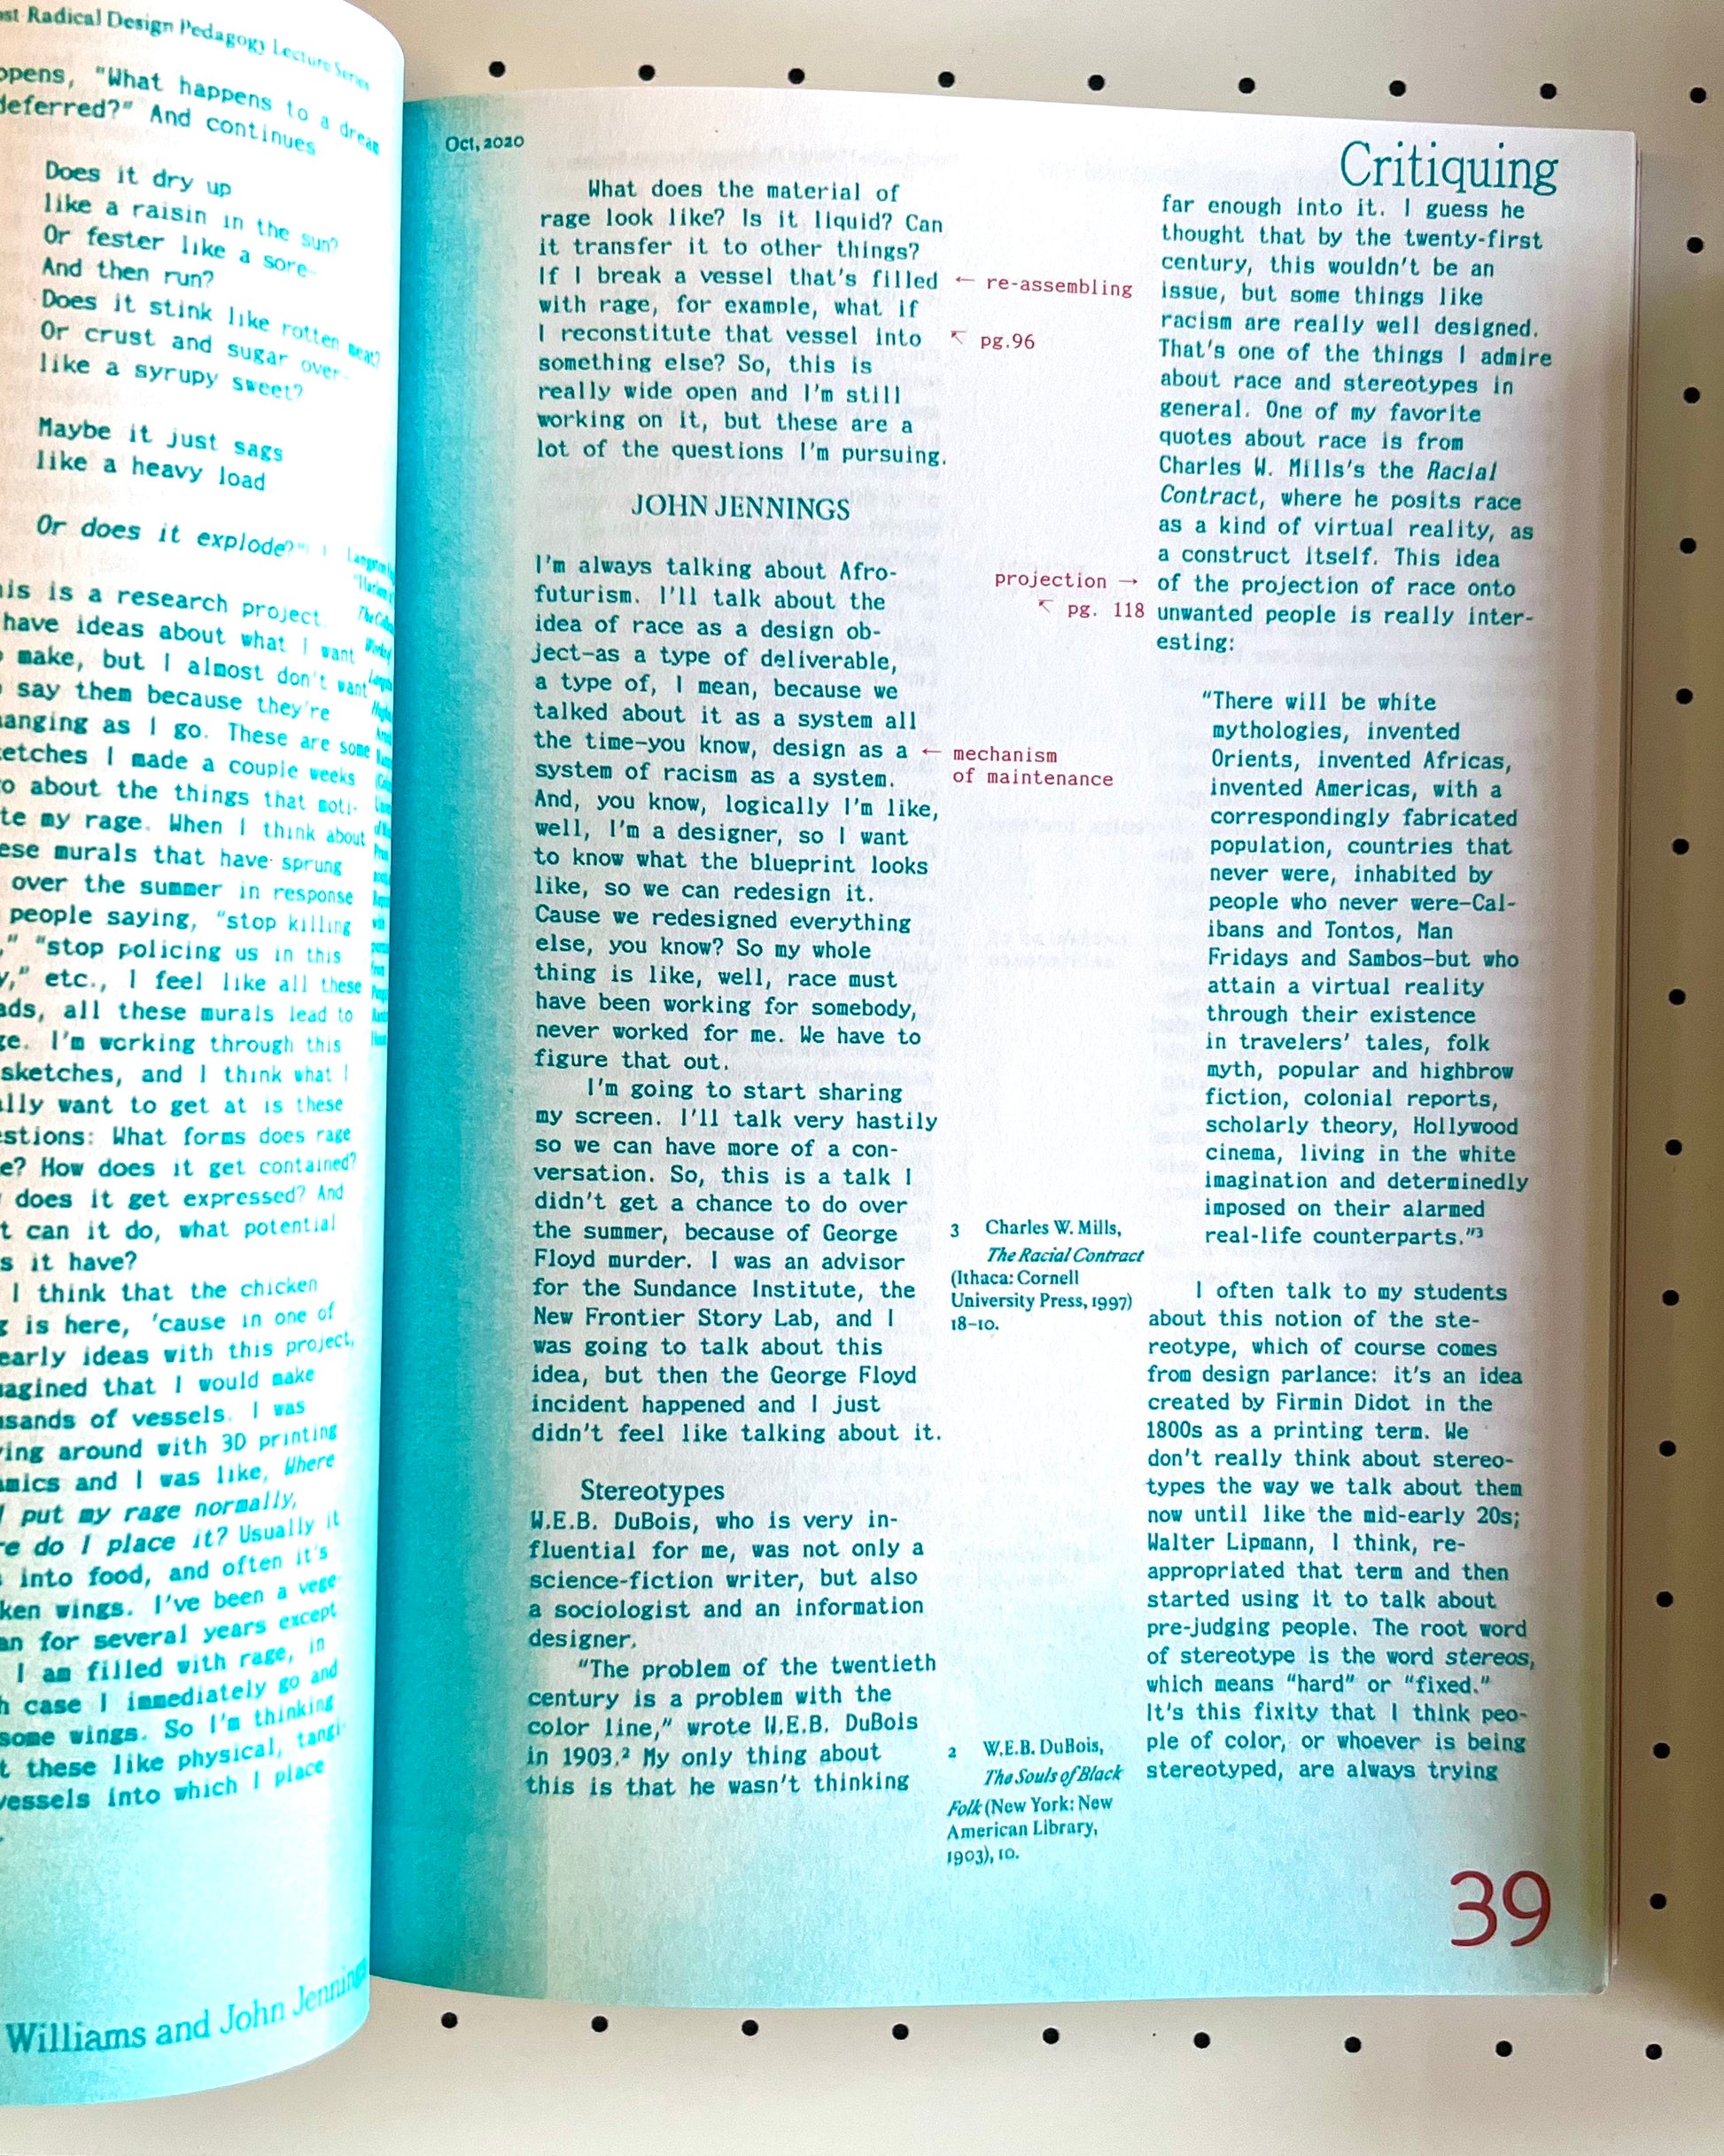 st Radical Design Pedagogy Lecture Series
opens, "What happens to a dream
deferred?" And continues
Does it dry up
like a raisin in the sun?
Or fester like a sore—
And then run?
Does it stink like rotten meat?
Or crust and sugar over—
like a syrupy sweet?
Maybe it just sags
like a heavy load
Or does it explode?"
is is a research project.
have ideas about what I want
make, but I almost don't want
say them because they're
anging as I go. These are some
etches I made a couple weeks
o about the things that moti-
te my rage. When I think about
ese murals that have sprung
over the summer in response
people saying, "stop killing
," "stop policing us in this
y," etc., I feel like all these
ads, all these murals lead to
ge. I'm working through this
sketches, and I think what I
lly want to get at is these
estions: What forms does rage
e? How does it get contained?
does it get expressed? And
t can it do, what potential
s it have?
I think that the chicken
g is here, 'cause in one of
early ideas with this project,
agined that I would make
usands of vessels. I was
ing around with 3D printing
amics and I was like, Where
I put my rage normally,
re do I place it? Usually it
into food, and often it's
ken wings. I've been a vege-
an for several years except
I am filled with rage, in
h case I immediately go and
some wings. So I'm thinking
t these like physical, tangi-
vessels into which I place
Williams and John Jennings
Oct, 2020
Critiquing
What does the material of
rage look like? Is it liquid? Can
it transfer it to other things?
If I break a vessel that's filled
with rage, for example, what if
I reconstitute that vessel into
something else? So, this is
really wide open and I'm still
working on it, but these are a
lot of the questions I'm pursuing.
← re-assembling
↖ pg.96
JOHN JENNINGS
I'm always talking about Afro-
futurism. I'll talk about the
idea of race as a design ob-
ject—as a type of deliverable,
a type of, I mean, because we
talked about it as a system all
the time—you know, design as a
system of racism as a system.
And, you know, logically I'm like,
well, I'm a designer, so I want
to know what the blueprint looks
like, so we can redesign it.
Cause we redesigned everything
else, you know? So my whole
thing is like, well, race must
have been working for somebody,
never worked for me. We have to
figure that out.
← mechanism
of maintenance
I'm going to start sharing
my screen. I'll talk very hastily
so we can have more of a con-
versation. So, this is a talk I
didn't get a chance to do over
the summer, because of George
Floyd murder. I was an advisor
for the Sundance Institute, the
New Frontier Story Lab, and I
was going to talk about this
idea, but then the George Floyd
incident happened and I just
didn't feel like talking about it.
Stereotypes
W.E.B. DuBois, who is very in-
fluential for me, was not only a
science-fiction writer, but also
a sociologist and an information
designer.
"The problem of the twentieth
century is a problem with the
color line," wrote W.E.B. DuBois
in 1903.² My only thing about
this is that he wasn't thinking
2 W.E.B. DuBois,
The Souls of Black
Folk (New York: New
American Library,
1903), 10.
far enough into it. I guess he
thought that by the twenty-first
century, this wouldn't be an
issue, but some things like
racism are really well designed.
That's one of the things I admire
about race and stereotypes in
general. One of my favorite
quotes about race is from
Charles W. Mills's the Racial
Contract, where he posits race
as a kind of virtual reality, as
a construct itself. This idea
of the projection of race onto
unwanted people is really inter-
esting:
projection →
↖ pg. 118
"There will be white
mythologies, invented
Orients, invented Africas,
invented Americas, with a
correspondingly fabricated
population, countries that
never were, inhabited by
people who never were—Cal-
ibans and Tontos, Man
Fridays and Sambos—but who
attain a virtual reality
through their existence
in travelers' tales, folk
myth, popular and highbrow
fiction, colonial reports,
scholarly theory, Hollywood
cinema, living in the white
imagination and determinedly
imposed on their alarmed
real-life counterparts."³
3 Charles W. Mills,
The Racial Contract
(Ithaca: Cornell
University Press, 1997)
18–10.
I often talk to my students
about this notion of the ste-
reotype, which of course comes
from design parlance: it's an idea
created by Firmin Didot in the
1800s as a printing term. We
don't really think about stereo-
types the way we talk about them
now until like the mid-early 20s;
Walter Lipmann, I think, re-
appropriated that term and then
started using it to talk about
pre-judging people. The root word
of stereotype is the word stereos,
which means "hard" or "fixed."
It's this fixity that I think peo-
ple of color, or whoever is being
stereotyped, are always trying
39